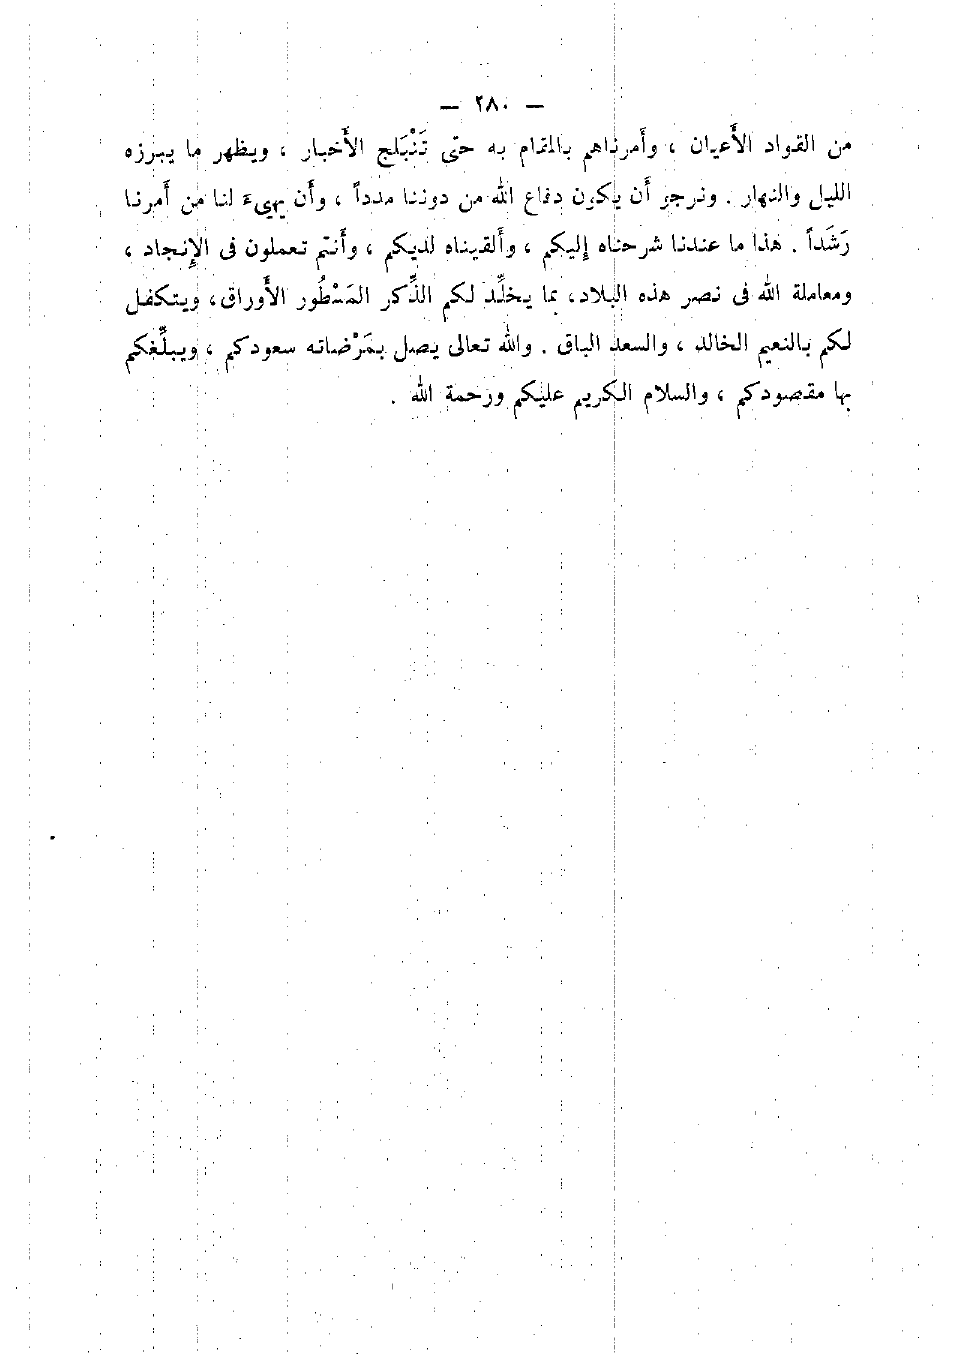 — ٢٨٠ —
من القواد الأَعيان ، وأَمرناهم بالمقام به حتى تَنْبَلج الأَخبار ، ويظهر ما يبرزه
الليل والنهار . ونرجو أَن يكون دفاع الله من دوننا مدداً ، وأَن يهيىء لنا من أَمرنا
رَشَداً . هذا ما عندنا شرحناه إِليكم ، وأَلقيناه لديكم ، وأَنتم تعملون فى الإِنجاد ،
ومعاملة الله فى نصر هذه البلاد، بما يخلِّد لكم الذِّكر المَسْطُور الأَوراق، ويتكفل
لكم بالنعيم الخالد ، والسعد الباق . والله تعالى يصل بمَرْضاته سعودكم ، ويبلِّغكم
بها مقصودكم ، والسلام الكريم عليكم ورحمة الله .